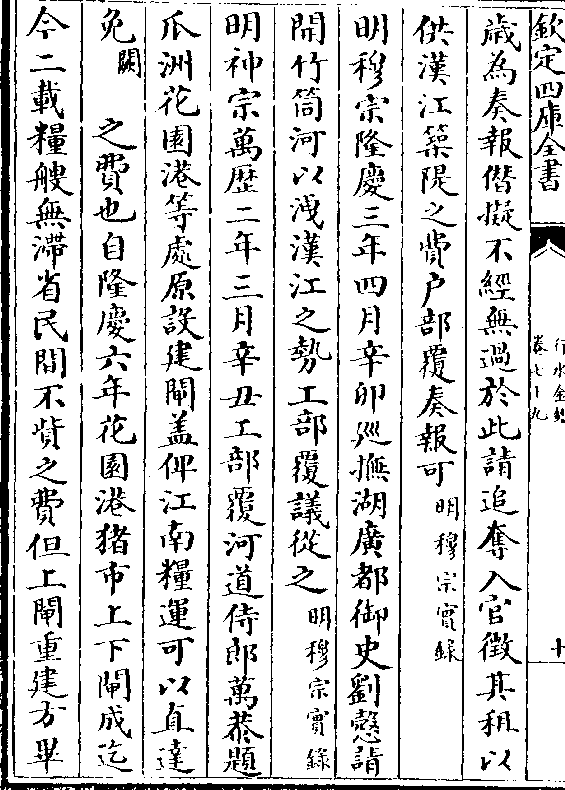 欽定四庫全書
行水金鑑
卷七十九
十
歲為奏報僣擬不經無過於此請追奪入官徵其租以
供漢江築隄之費户部覆奏報可明穆宗實録
明穆宗隆慶三年四月辛卯廵撫湖廣都御史劉慤請
開竹筒河以洩漢江之勢工部覆議從之明穆宗實録
明神宗萬歴二年三月辛丑工部覆河道侍郎萬恭題
瓜洲花園港等處原設建閘盖俾江南糧運可以直達
免闕 之費也自隆慶六年花園港猪市上下閘成迄
今二載糧艘無滯省民間不貲之費但上閘重建方畢